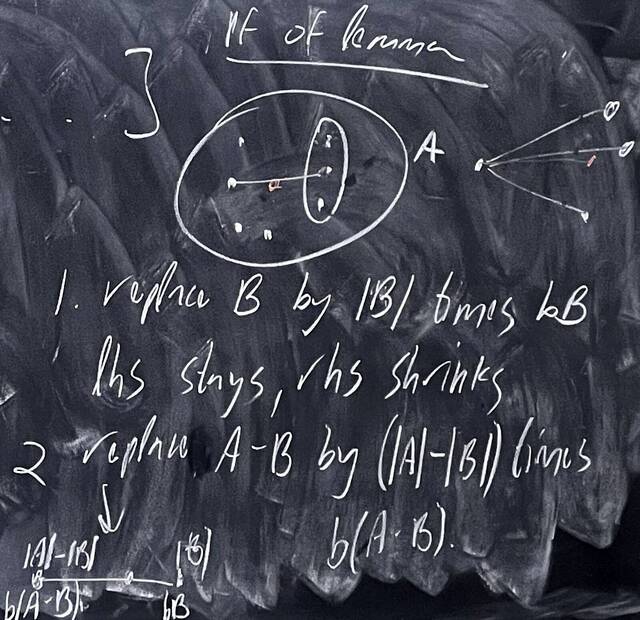 Pf of lemma
]
A
1. replace B by |B| times bB
lhs stays, rhs shrinks
2 replace A-B by (|A|-|B|) times
b(A-B).
|A|-|B| |B|
b(A-B). bB